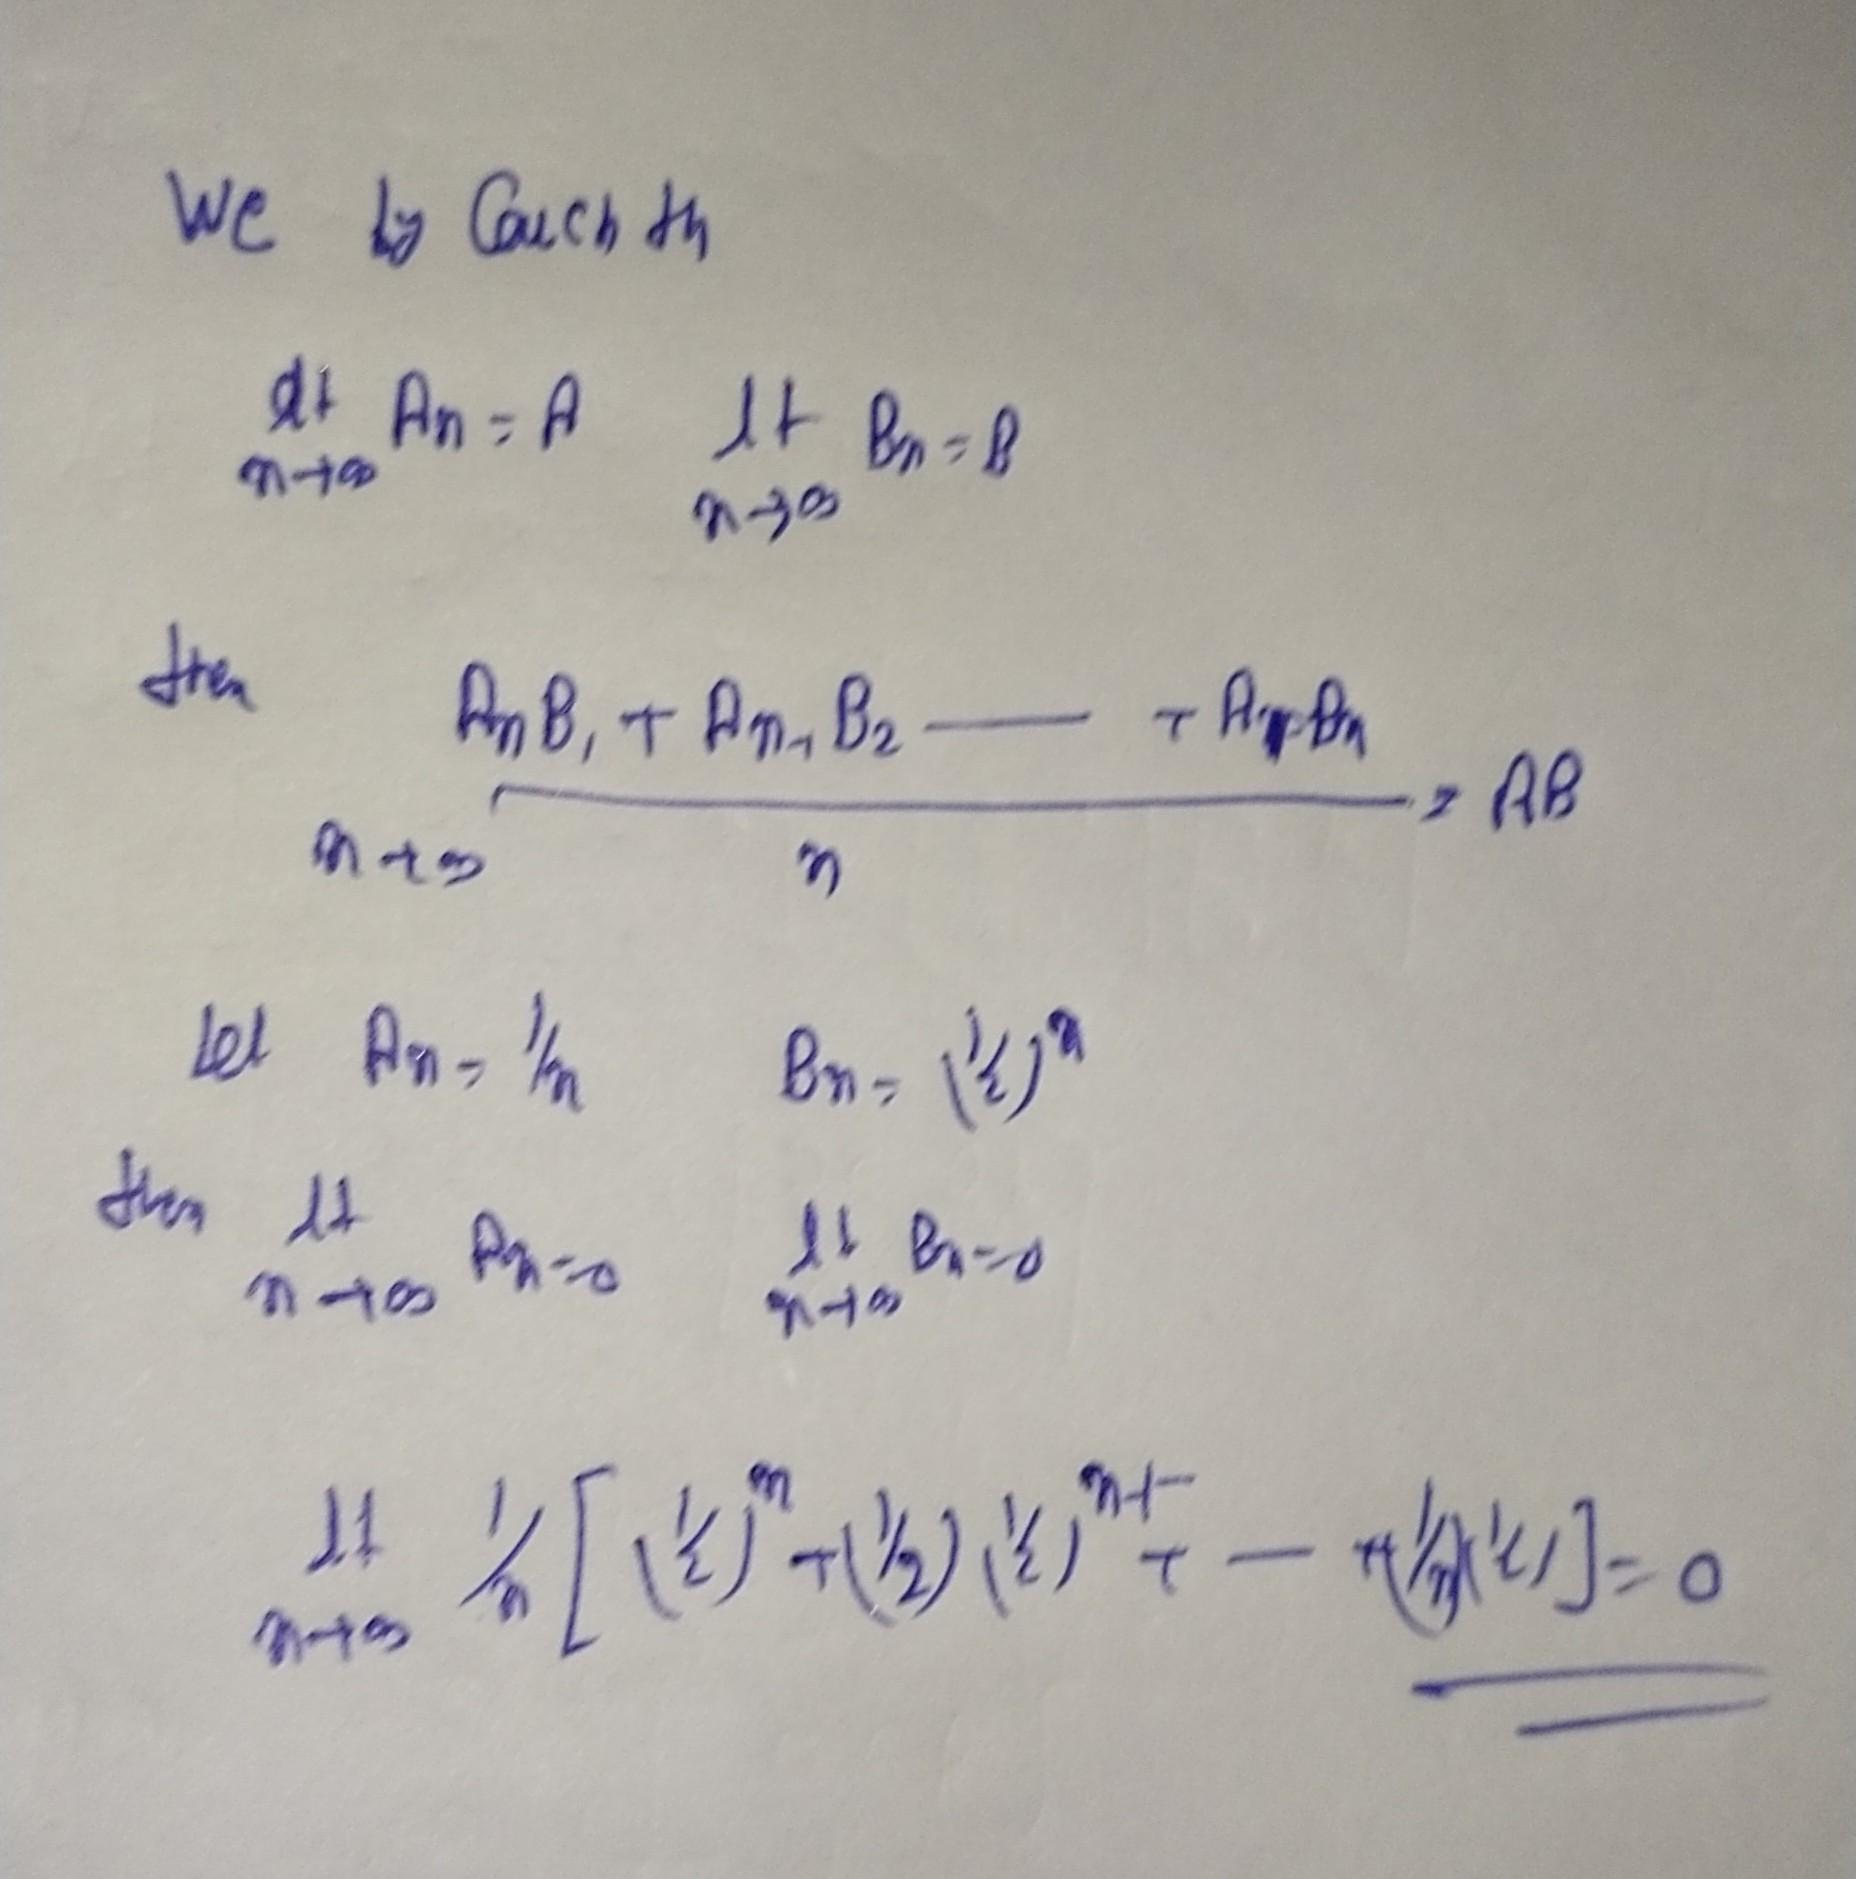 We by Cauch th
lt An = A lt Bn = B
n→∞ n→∞
then AnB1 + An-1B2 — + A1Bn
n→∞ n = AB
Let An = 1/n Bn = (1/2)^n
then lt An = 0 lt Bn = 0
n→∞ n→∞
lt 1/n [ (1/2)^n + (1/2) (1/2)^n-1 + — + (1/n)(1/2) ] = 0
n→∞